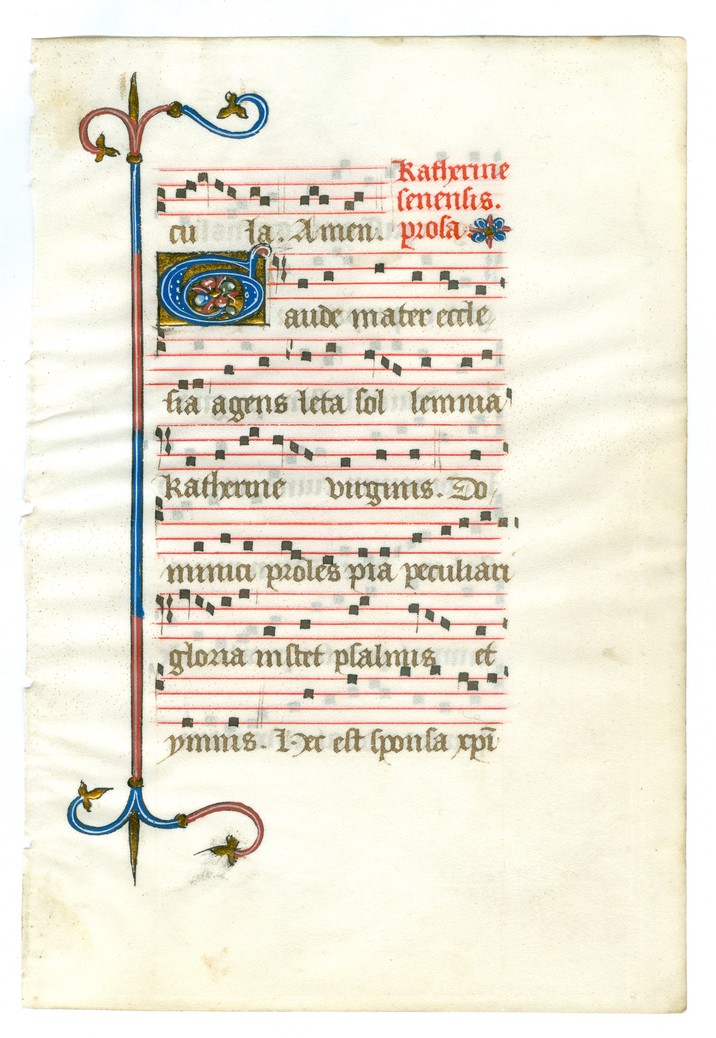 cu la. Amen. Katherine
senensis.
prosa
Gaude mater eccle
sia agens leta sol lemnia
Katherine virginis. Do
minici proles pia peculiari
gloria instet psalmis et
ymnis. Hec est sponsa xpī